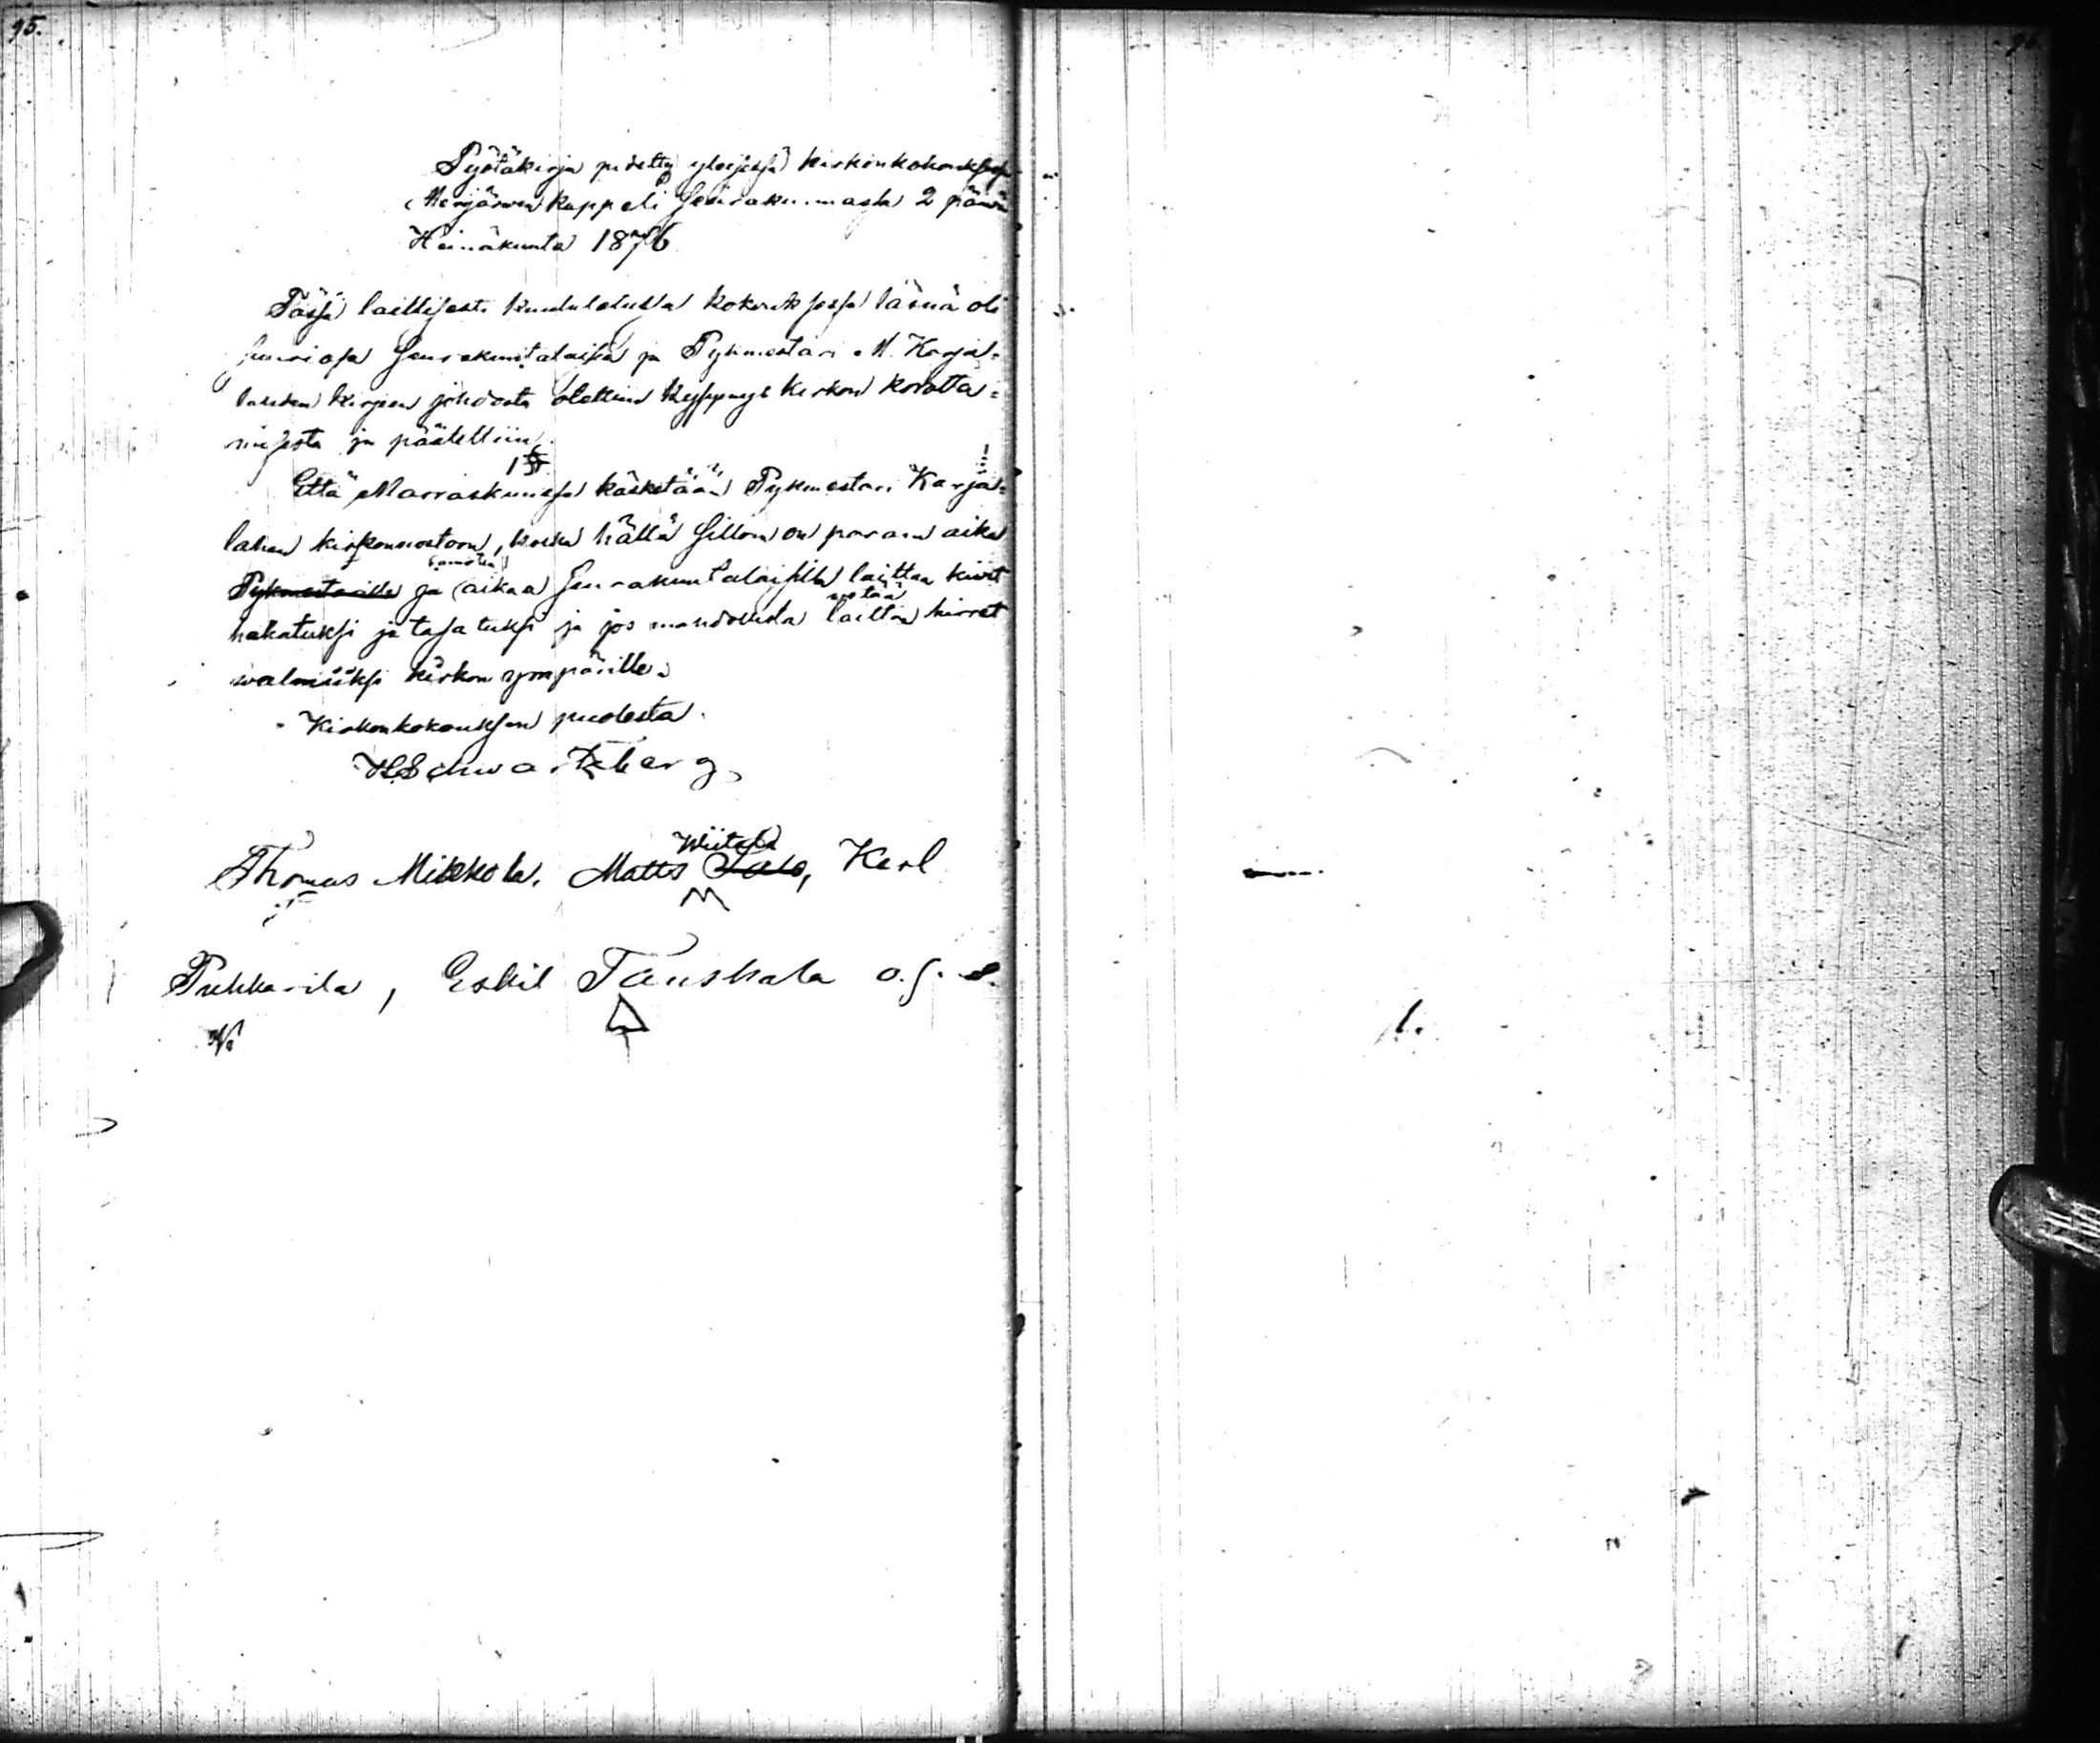 95.
Pyötäkirja pidetty yleisessä kirkonkokouksessa
Merijärwen kappeli seurakunnasta 2 päiwä
Heinäkunta 1876
Tässä laillisesti kuulutetussa kokouksessa läsnä oli
suuriosa seurakuntalaisia ja Pykmestari M. Karja=
lahden kirjeen johdosta otettiin kysymys kirkon korotta=
misesta ja päätettiin.
1 §
Että Marraskuussa käsketään Pykmestari Karja=
lahen kirkonnostoon, koska hällä sillon on parain aika
Pykmestarille ja (aikaa) seurakuntalaisilla laittaa kiwet
hakatuksi ja tasatuksi ja jos mahdollista laittaa hirret
walmiiksi kirkon ympärille.
Kirkonkokouksen puolesta.
H Schwartzberg,
Wiitala
Thomas Mikkola, Matts Salo, Karl
Puhkarila, Eskil Tanskala o. s. w.